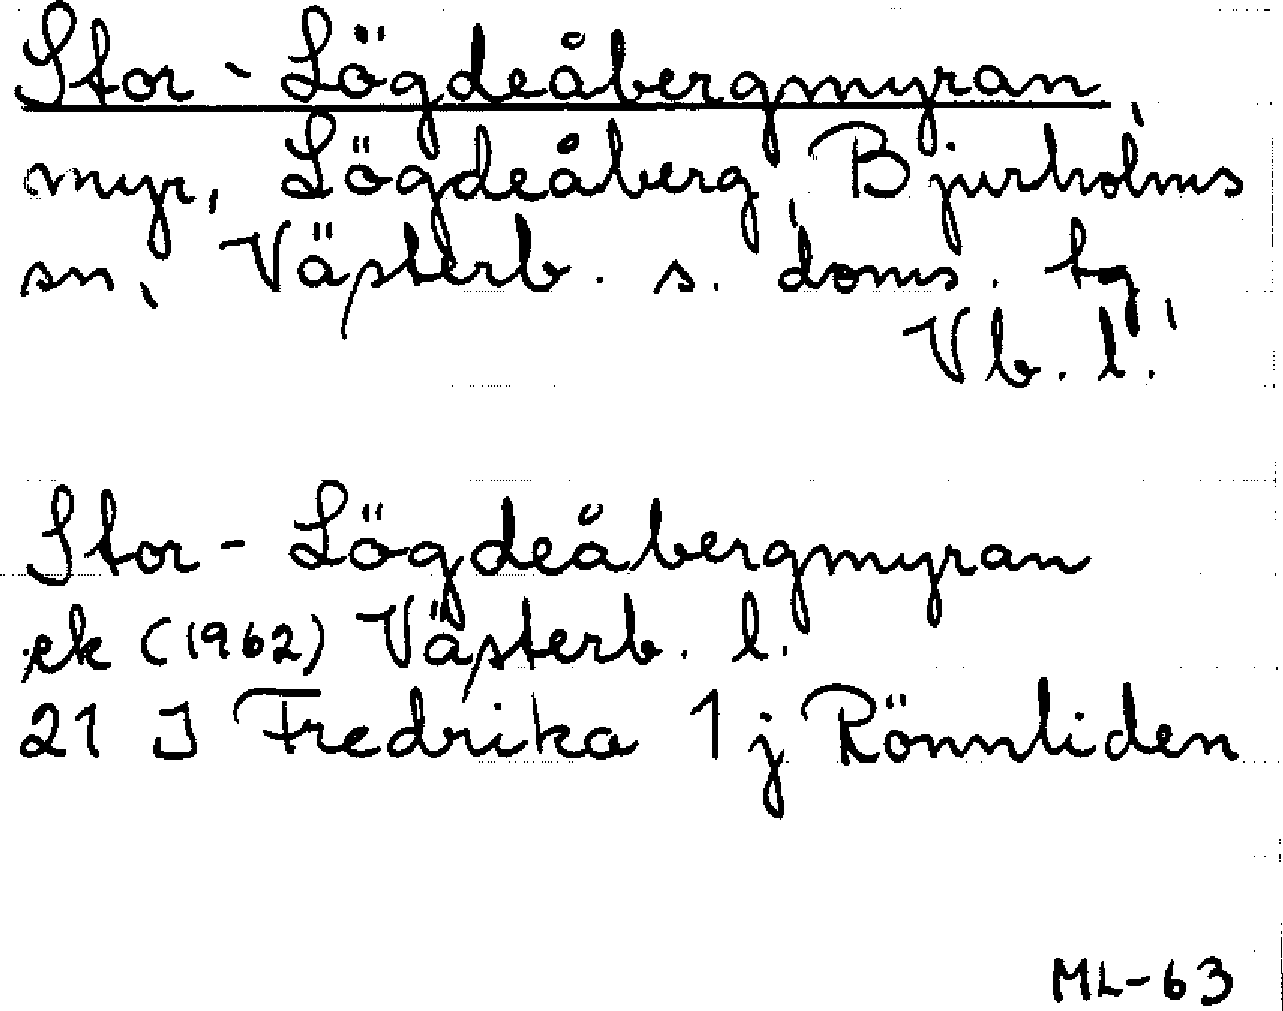 Stor-Lögdeåbergmyran,
myr, Lögdeåberg, Bjurholms
sn, Västerb. s. doms. tg,
Vb. l.
Stor-Lögdeåbergmyran
ek (1962) Västerb. l.
21 J Fredrika 1 j Rönnliden
ML-63